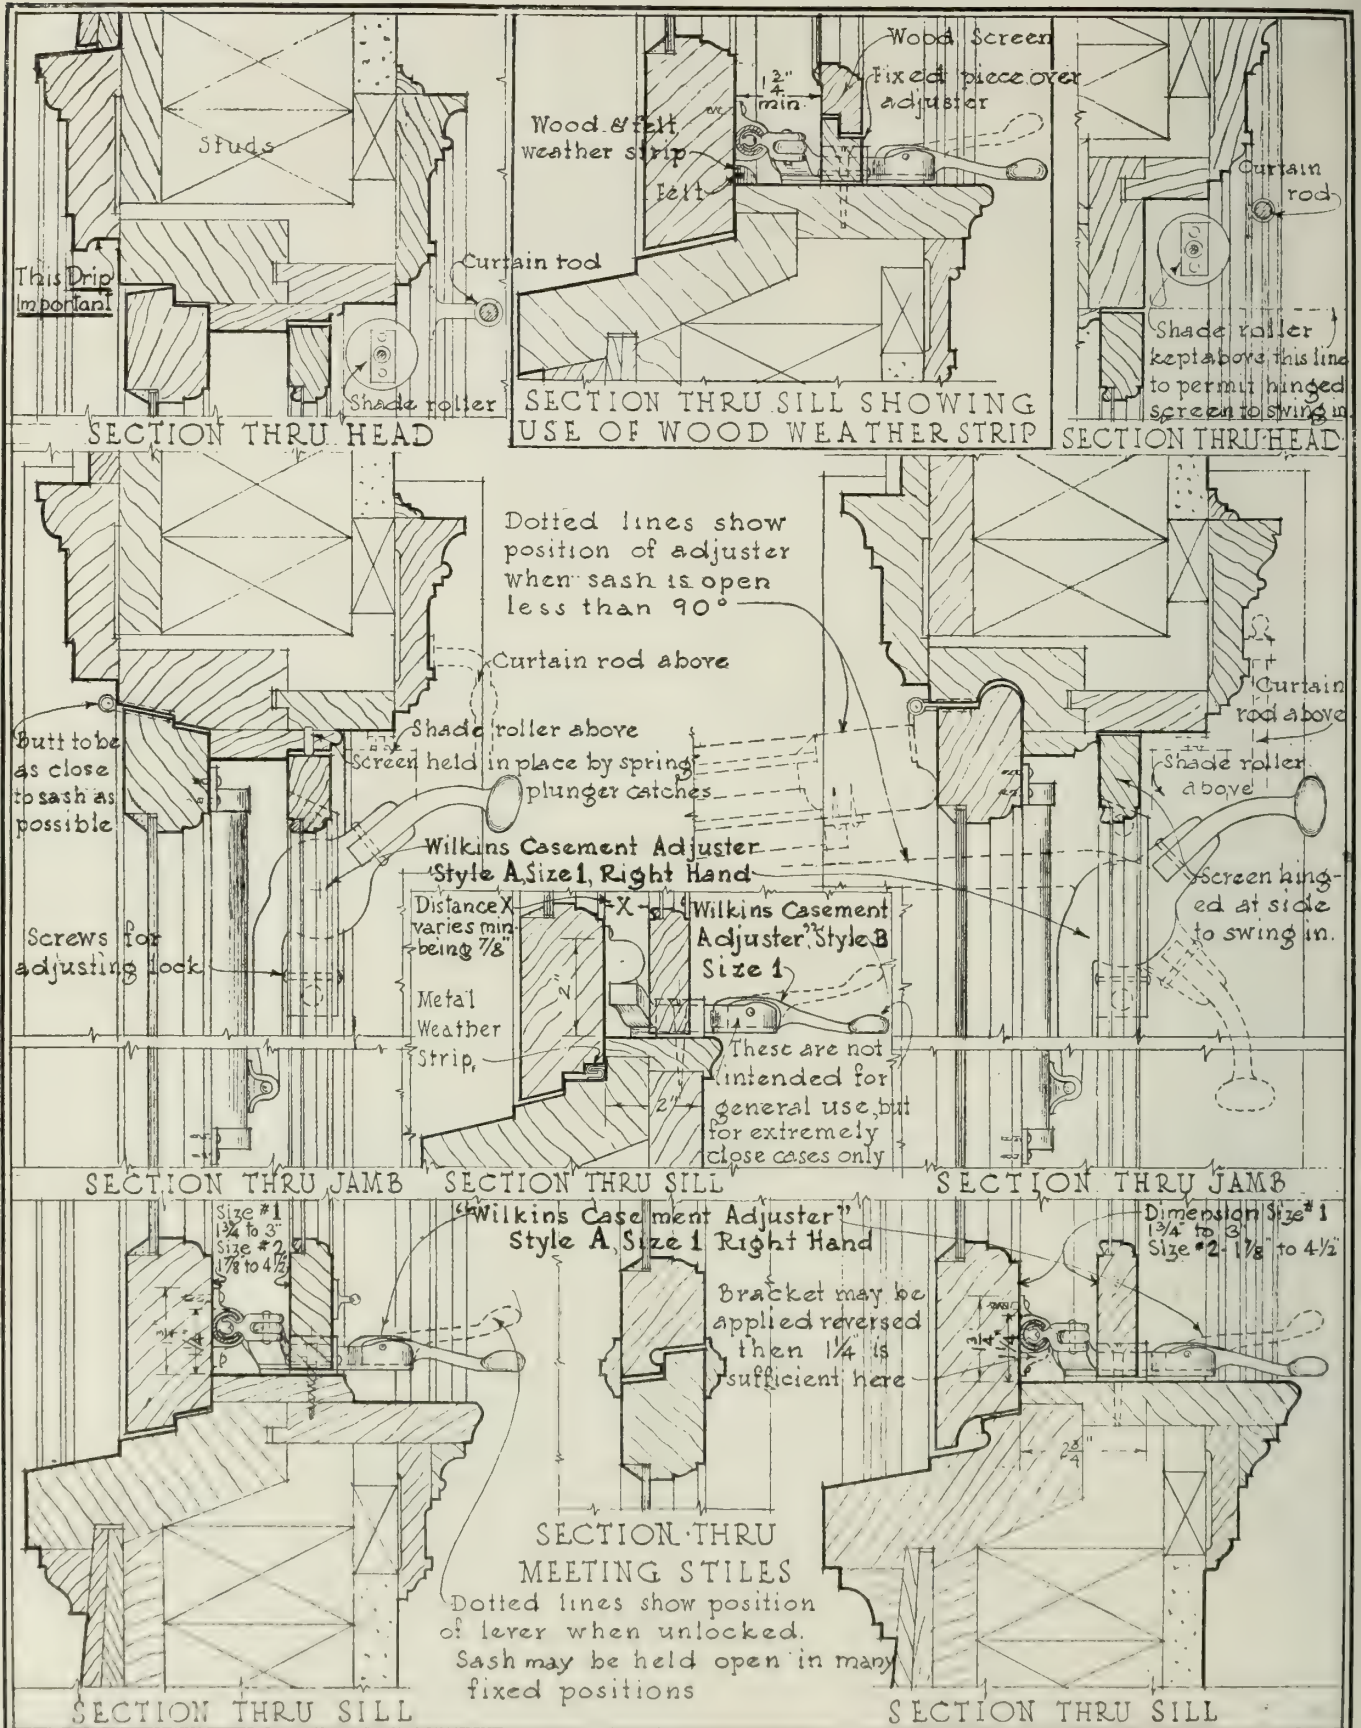 Studs
This Drip
Important
Curtain rod
Shade roller
SECTION THRU HEAD
Wood Screen
Fixed piece over
adjuster
1 3/4"
min.
Wood & felt
weather strip
Felt
SECTION THRU SILL SHOWING
USE OF WOOD WEATHER STRIP
Curtain
rod
Shade roller
kept above this line
to permit hinged
screen to swing in.
SECTION THRU HEAD
Dotted lines show
position of adjuster
when sash is open
less than 90°
Curtain rod above
Shade roller above
Screen held in place by spring
plunger catches
Butt to be
as close
to sash as
possible
Wilkins Casement Adjuster
Style A, Size 1, Right Hand
Screws for
adjusting lock
Distance X
varies min.
being 7/8"
X
2"
Metal
Weather
Strip
"Wilkins Casement
Adjuster," Style B
Size 1
These are not
intended for
general use, but
for extremely
close cases only
2"
Curtain
rod above
Shade roller
above
Screen hing-
ed at side
to swing in.
SECTION THRU JAMB
SECTION THRU SILL
SECTION THRU JAMB
Size #1
1 3/4 to 3"
Size #2
1 7/8 to 4 1/2"
"Wilkins Casement Adjuster"
Style A, Size 1 Right Hand
Bracket may be
applied reversed
then 1 1/4" is
sufficient here
Dimension Size #1
1 3/4" to 3"
Size #2 - 1 7/8" to 4 1/2"
1 3/4"
2 3/4"
SECTION THRU
MEETING STILES
Dotted lines show position
of lever when unlocked.
Sash may be held open in many
fixed positions
SECTION THRU SILL
SECTION THRU SILL